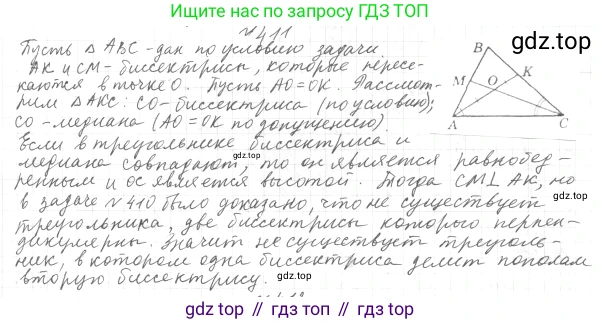 Ищите нас по запросу ГДЗ ТОП
№ 411
Пусть △ ABC - дан по условию задачи.
AK и CM - биссектрисы, которые пересе-
каются в тычке O. Пусть AO = OK. Рассмот-
рим △ AKC: CO - биссектриса (по условию);
CO - медиана (AO = OK по допущению).
Если в треугольнике биссектриса и
медиана совпадают, то он является равнобед-
ренным и OC является высотой. Тогда CM ⊥ AK, но
в задаче № 410 было доказано, что не существует
треугольника, две биссектрисы которого перпен-
дикулярны. Значит не существует треуголь-
ник, в котором одна биссектриса делит пополам
вторую биссектрису.
B
M
O
K
A
C
gdz.top // gdz.top // gdz.top // gdz.top // gdz.top